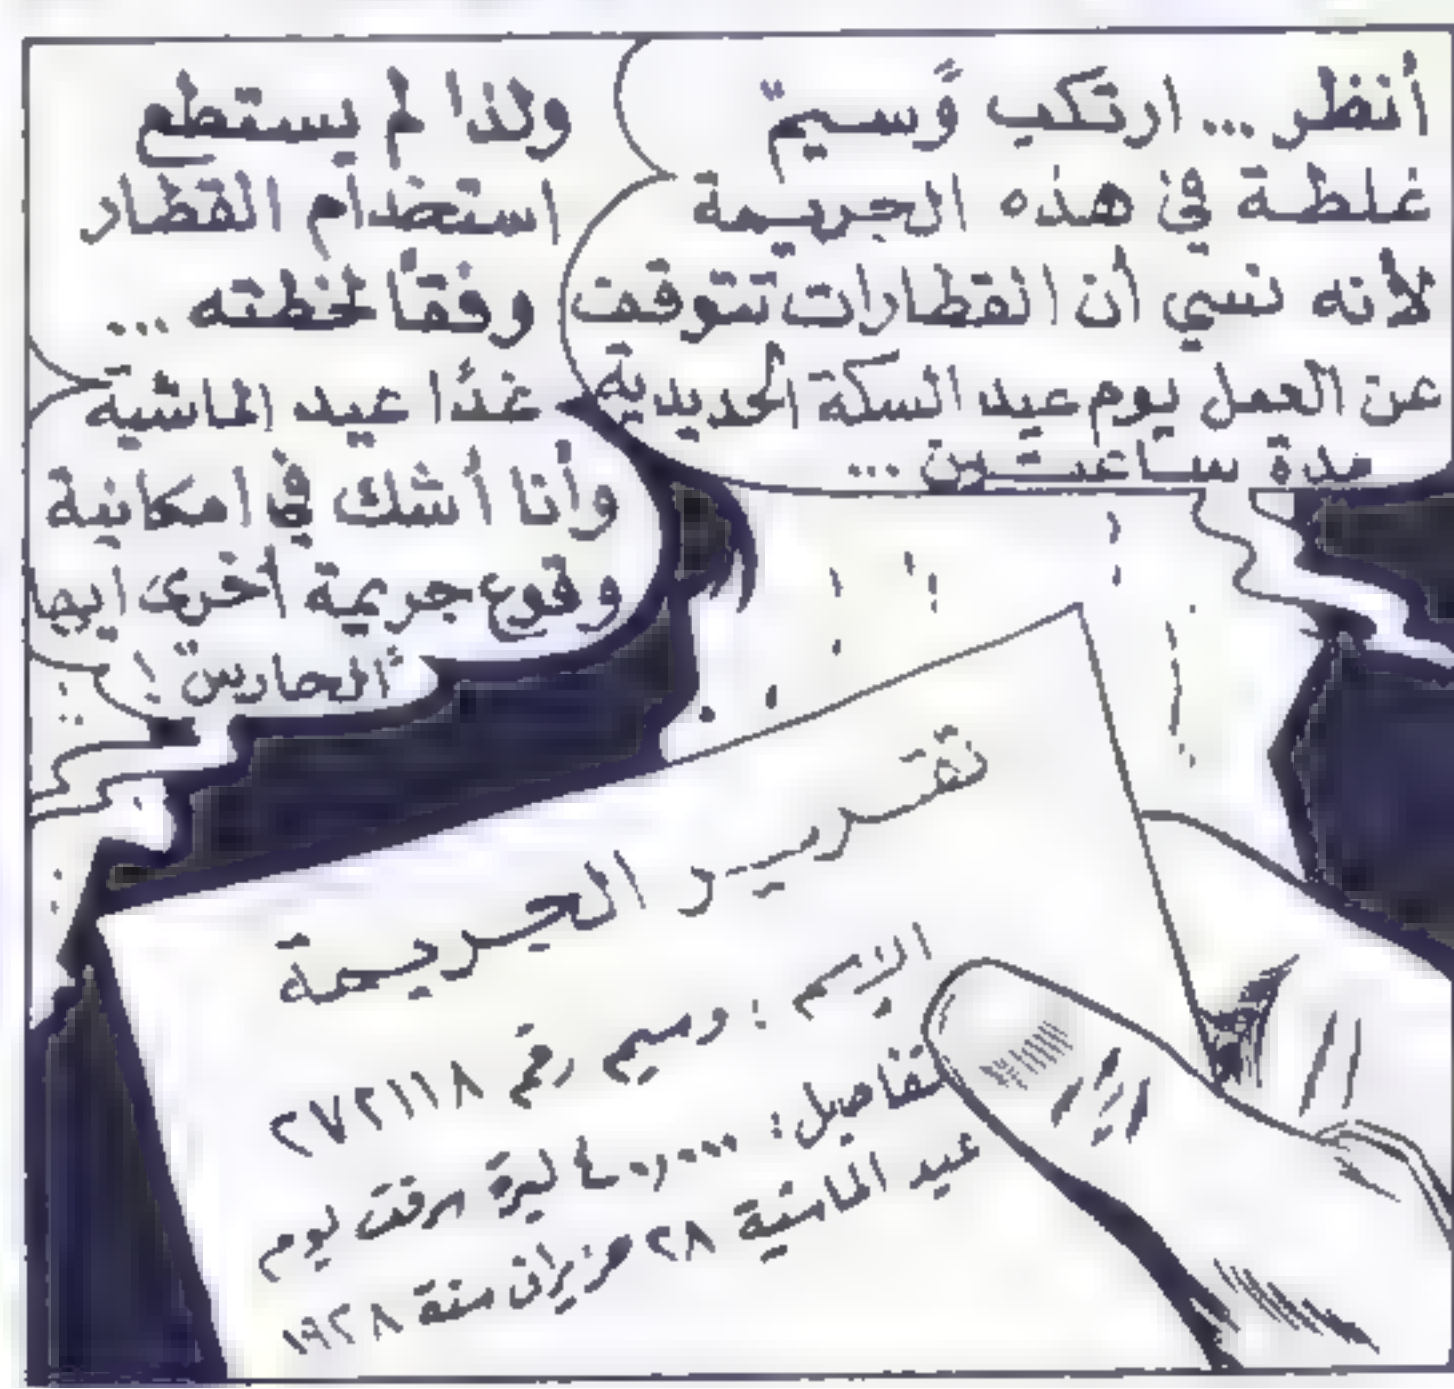 أنظر ... ارتكب "وسيم"
غلطة في هذه الجريمة
لأنه نسي أن القطارات تتوقف
عن العمل يوم عيد السكة الحديدية
مدة ساعتين ...
ولذا لم يستطع
استخدام القطار
وفقاً لخطته ...
غدًا عيد الماشية
وأنا أشك في امكانية
وقوع جريمة أخرى ايها
"الحارس" !
تقرير الجريمة
الإسم : وسيم رقم ٢٧٢١١٨
تفاصيل : ٤٠,٠٠٠ ليرة سرقت يوم
عيد الماشية ٢٨ حزيران سنة ١٩٢٨